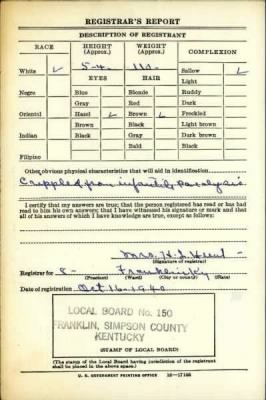 REGISTRAR'S REPORT
DESCRIPTION OF REGISTRANT
RACE HEIGHT (Approx.) WEIGHT (Approx.) COMPLEXION
White ✓ 5-4 110 Sallow ✓
EYES HAIR Light
Negro Blue Blonde Ruddy
Gray Red Dark
Oriental Hazel ✓ Brown ✓ Freckled
Brown Black Light brown
Indian Black Gray Dark brown
Bald Black
Filipino
Other obvious physical characteristics that will aid in identification
Crippled from infantile paralysis
I certify that my answers are true; that the person registered has read or has had
read to him his own answers; that I have witnessed his signature or mark and that
all of his answers of which I have knowledge are true, except as follows:
Mrs. H. L.
(Signature of registrar)
Registrar for 8 - Franklin Ky
(Precinct) (Ward) (City or county) (State)
Date of registration Oct 16-1940
LOCAL BOARD No. 150
FRANKLIN, SIMPSON COUNTY
KENTUCKY
(STAMP OF LOCAL BOARD)
(The stamp of the Local Board having jurisdiction of the registrant
shall be placed in the above space.)
U. S. GOVERNMENT PRINTING OFFICE 16-17105